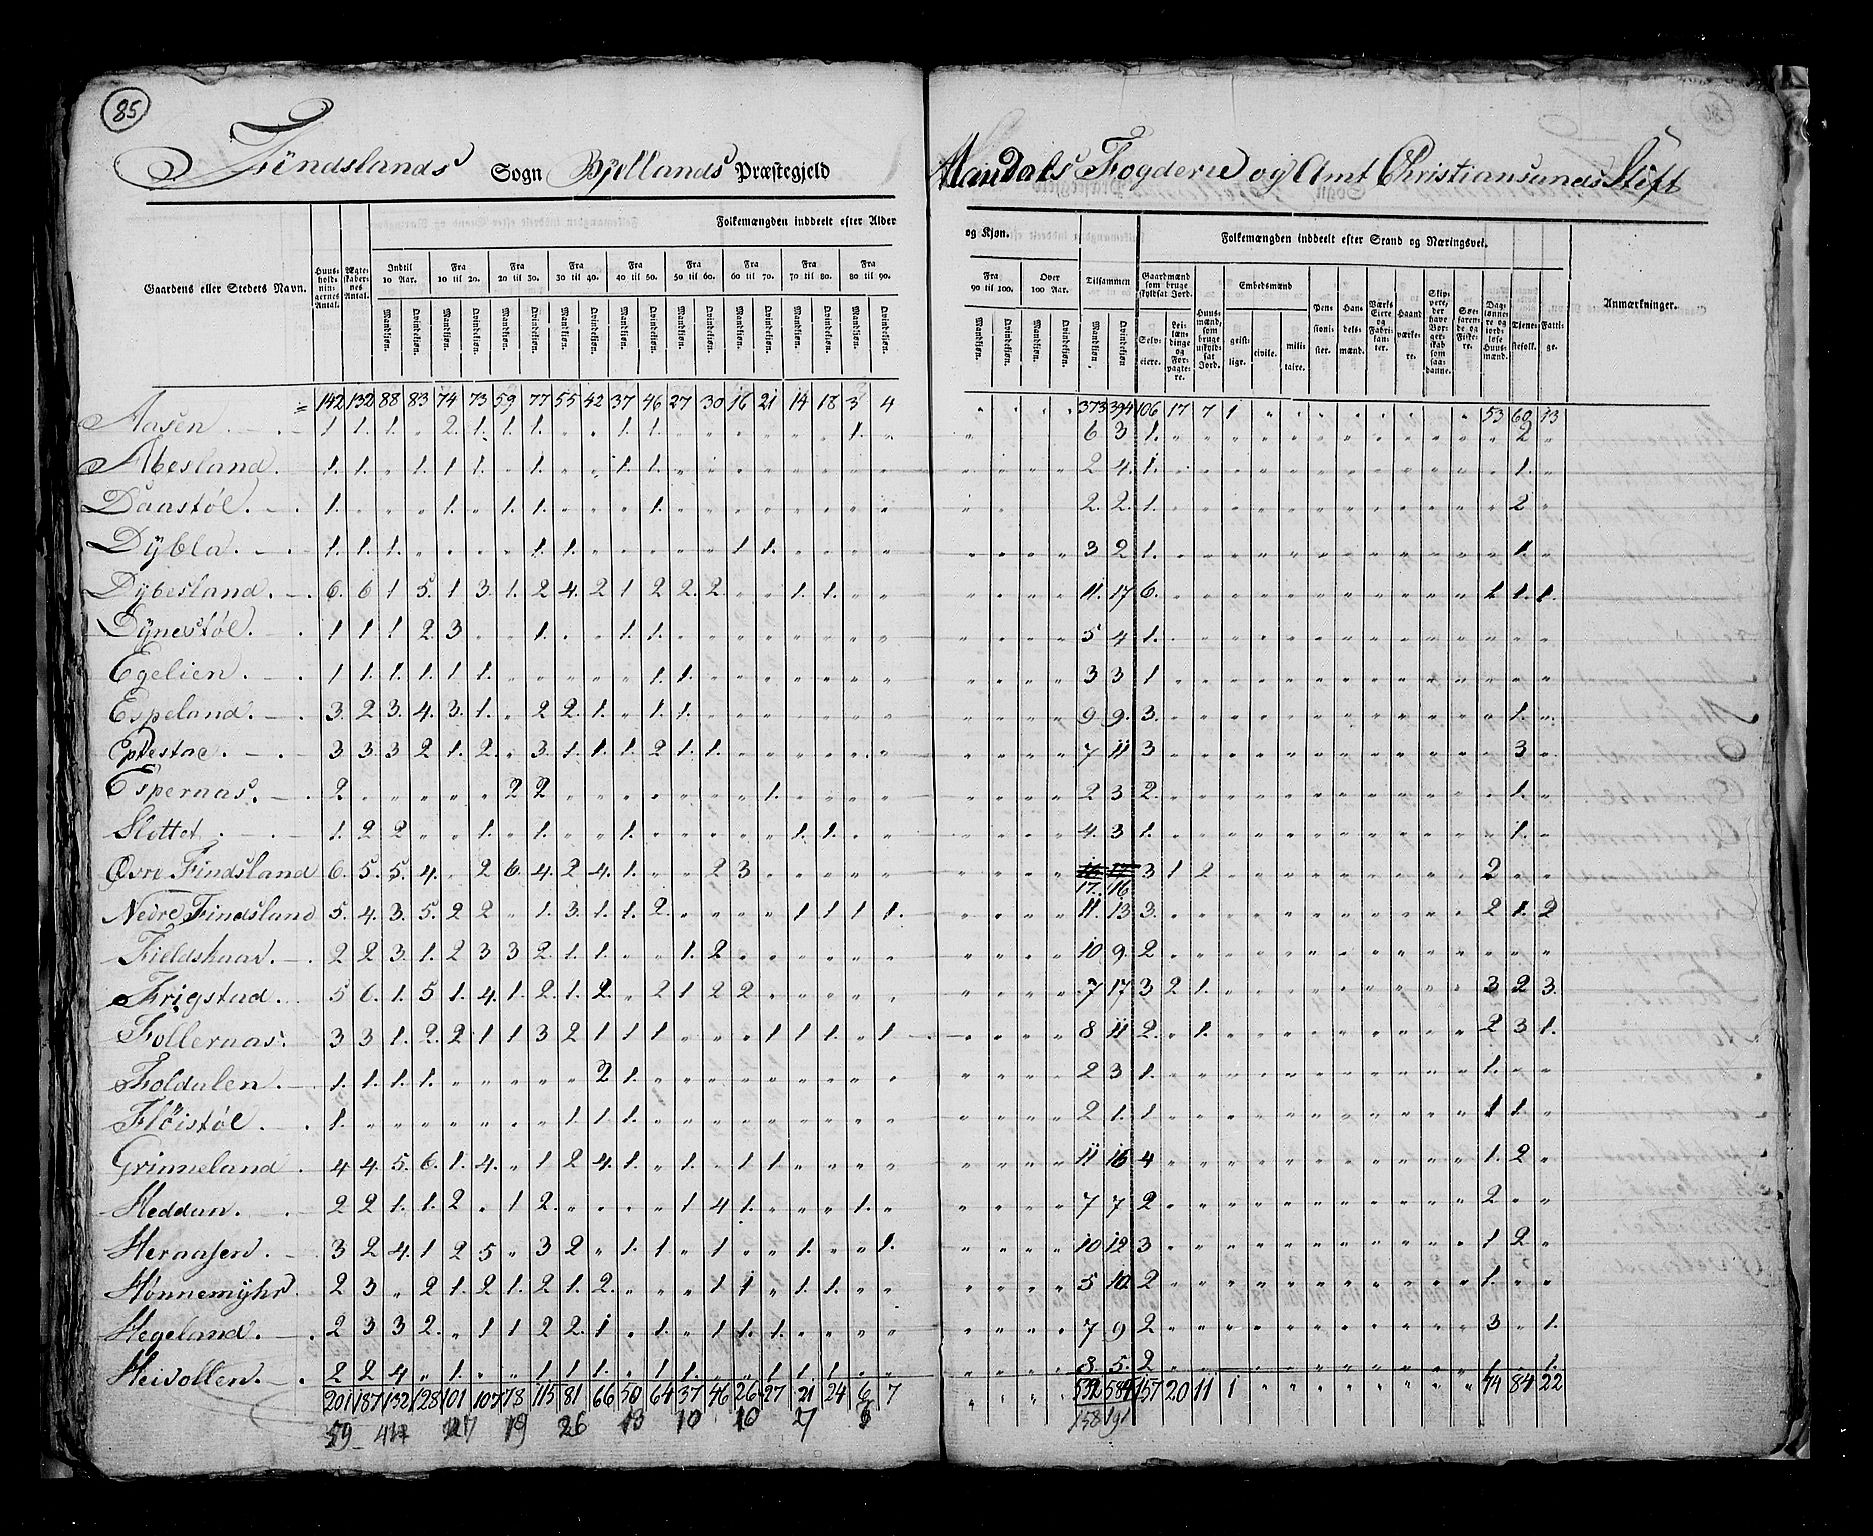 85
Findslands Sogn Bjellands Præstegjeld
Mandals Fogderie og Amt Christiansands Stift
Folkemængden inddeelt efter Alder
og Kjøn.
Folkemængden inddeelt efter Stand og Næringsvei.
Gaardens eller Stedets Navn.
Huusholdningernes Antal.
Ægteskabernes Antal.
Indtil 10 Aar.
Fra 10 til 20.
Fra 20 til 30.
Fra 30 til 40.
Fra 40 til 50.
Fra 50 til 60.
Fra 60 til 70.
Fra 70 til 80.
Fra 80 til 90.
Fra 90 til 100.
Over 100 Aar.
Tilsammen
Mandkiøn. Qvindekiøn.
Gaardmænd som bruge skyldsat Jord.
Selveiere.
Leilændinge og Forpagtere.
Huusmænd, som bruge uskyldsat Jord.
Embedsmænd
geistlige. civile. militaire.
Pensionister.
Handelsmænd.
Værks Eiere og Fabrikanter.
Haandværkere.
Skippere, der have Borgerskab som saadanne.
Søefarende og Fiskere.
Dagslønnere og jordløse Huusmænd.
Tjenestefolk.
Fattige.
Anmærkninger.
= 142 132 88 83 74 73 59 77 55 42 37 46 27 30 16 21 14 18 3 4 " " " " 373 394 106 17 7 1 " " " " " " " " 53 60 13
Aasen 1 1. 1. " 2. 1. 1. 1. " " 1. 1. " " " " " " 1. " 6 3 1. 2
Abesland. 1. 1. " 1. 1 1. " 1. " " 1. 1. 2 4. 1. 1.
Daastøl. 1. " " " 1. " 1. 1. " " " 1. 2. 2. 1. 2
Dÿbla. 1. 1. 1. " " " " 1. 1. " " " " " 1 1. 3 2. 1. 1.
Dÿbesland. 6. 6 1 5. 1 3. 1. 2 4. 2 1 2 2. 2. " " 1. 1. " " 11. 17 6. 1 1. 1.
Dÿnestøl. 1 1 1 2 3 " " 1. " " 1. 1. 5 4 1.
Egelien. 1 1. 1. 1. 1 1. " " " " " 1. 1. 3 3 1
Espeland. 3. 2 3. 4. 3. 1. " 2 2. 1. " 1. 1. 9 9. 3. 1.
3 3 3 2 1. 2. " 3. 1. 1. 1. 2 1. 1. 7 11 3 3
Espernas. 2 " " " " " 2 2 " " " " " " " 1. 2 3 2. 1.
Slettet 1. 2 2 " " 1. " 1. " " 1. " " " " " 1. 1. " " 4. 3 1. 1.
Øvre Findsland 6. 5. 5 4. " 2 6. 4. 2 4. 1. " " 2 3 16 17 3 1 2 2
17. 16
Nedre Findsland 5. 4. 3. 5. 2 2 " 1. 3. 1. 1. 2 " " " " 1 1 1 1. 11. 13 3. 2 1. 2
Fieldskaar. 2 2 3. 1. 2 3 3 2 1. 1. " " 1. 2 10 9. 2
Frigstad. 5 6. 1. 5 1. 4. 1. 2. 1. 2. " 2 1 2 2 7 17 3 2 1. 3 2 3.
Follernas. 3 3 1. 2. 2 1 1 3 2 1 1 1. " " " 1 1 1. " 1 8 11 2. " 1. 2 3 1.
Foldalen. 1. 1. 1. 1. " " " " " 2 1. 2 3 1. 1.
Fløistøl. 1. " " " " " " " 1 1 1. 2 1. 1 1 1.
Grinneland 4 4. 5. 6. 1. 4. " 1 2 4. 1. " 1. " 1 1. 11 15 4 1. 2
Heddan. 2 2 1. 1. 2 " 1 2. " " " " 1 4 1. " " " 1. " 7 7 2 2
Heraasen. 3 2 4. 1 2 5 " 3 2 " 1. 1. " 1. " " 1. " " 1. 10 12 3 1 2.
Hønnemÿhr 2 3 " 2 1. 2 1. 2 1. 2. " " " 1 1 " 1. 1. " " 5 10. 2 1.
Hegeland. 2 3 3 2. " 1 1 2 2. 1 " 1. " 1 1. 1. 7 9 2 3 " 1.
Heivollen. 2 2 4 " 1. " " 1 1 1. " 1 1. " " 1. 1. 1. " " 8. 5. 2 1. " 1.
201 187 132 128 101 107 78 115 81 66 50 64 37 46 26 27 21 24 6 7 532 584 157 20 11 1 74 84 22
59 19 26 13 10 10 7
158 191